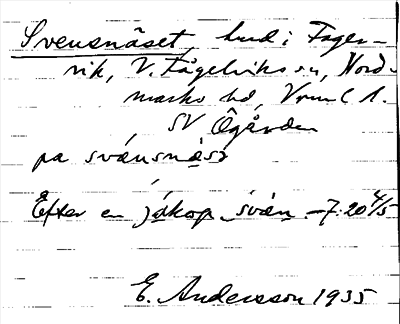 Svensnäset, hud i Fager-
vik, V. Fågelviks sn, Nord-
marks hd, Vrml l.
SV Ögården
pa svånsnäsə
Efter en jákop svän -7:20 4/5
E. Andersson 1935